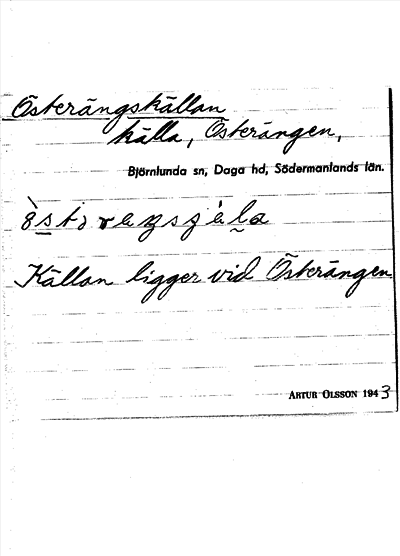 Österängskällan
källa, Österängen,
Björnlunda sn, Daga hd, Södermanlands län.
Källan ligger vid Österängen
ARTUR OLSSON 1943